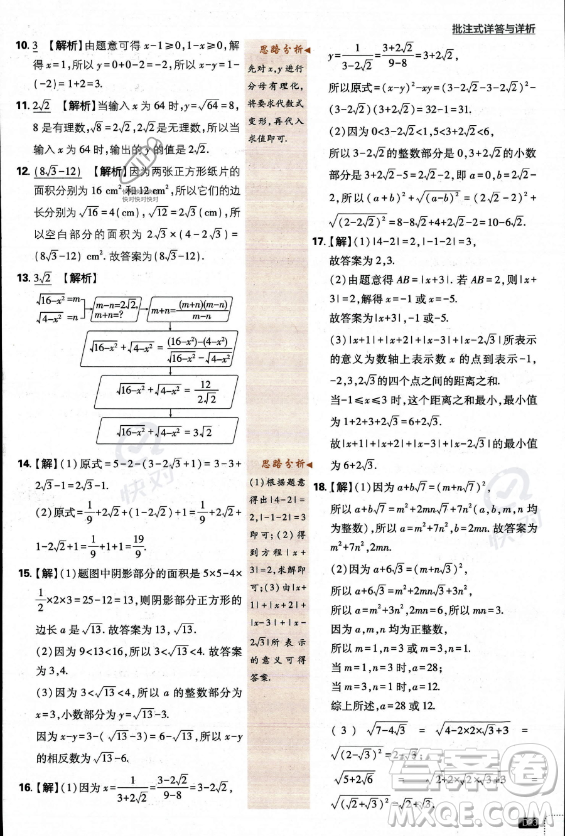 批注式详答与详析
10. 3 【解析】由题意可得 x-1≥0,1-x≥0,解
得 x=1,所以原式=1-(-2)+(-2)=1+2+
(-2)=1+0=1.
11. 2√2 【解析】当输入 x 为 64 时,y=√64=8,
8 是有理数,√8=2√2,2√2是无理数,所以当
输入 x 为 64 时,输出的 y 的值是 2√2.
12. (8√3-12) 【解析】因为两张正方形纸片的
面积分别为 16 cm² 和 12 cm²,所以它们的边
长分别为√16=4(cm),√12=2√3(cm),所
以空白部分的面积为 2√3×(4-2√3)=
(8√3-12) cm². 故答案为(8√3-12).
13. 3√2 【解析】
√16-x²=m
√4-x²=n
m-n=2√2,
m+n=?
m+n=(m+n)(m-n)/(m-n)
√16-x²+√4-x²=((16-x²)-(4-x²))/(√16-x²-√4-x²)
√16-x²+√4-x²=12/(2√2)
√16-x²+√4-x²=3√2
14. 【解】(1)原式=5-2-(3-2√3+1)=3-3+
2√3-1=2√3-1.
(2)原式=1/9+2√2+(1-2√2)+1=1/9+2√2+
1-2√2+1=1/9+1+1=19/9.
15. 【解】(1)题图中阴影部分的面积 5×5-4×
1/2×2×3=25-12=13,则阴影部分正方形的
边长 a 是√13. 故答案为√13.
(2)因为 9<13<16,所以 3<√13<4. 故答案
为 3,4.
(3)因为 3<√13<4,所以√13的整数部分为
x=3,√13的小数部分为 y=√13-3,
所以 x-y=3-(√13-3)=6-√13,所以 x-y
的相反数为√13-6.
16. 【解】(1)因为 x=1/(3+2√2)=(3-2√2)/(9-8)=3-2√2,
思路分析
先对 x,y 进行
分母有理化,
将要求代数式
变形,再代入
求值即可.
思路分析
(1)根据题意
得出|4-2|=
2,|-1-2|=3
即可;(2)得
到方程|x+
3|=2,求解即
可;(3)由|x+
1|+|x+2|+
|x-3|+|x-
2√3|所表示
的意义可得
答案.
y=1/(3-2√2)=(3+2√2)/(9-8)=3+2√2,
所以原式=(x-y)²-xy=(3-2√2-3-2√2)²-
(3-2√2)(3+2√2)=32-1=31.
(2)因为 2<2√2<3,所以 5<3+2√2<6,
所以 3-2√2的整数部分是 0,3+2√2的小数
部分是 3+2√2-5=2√2-2,即 a=0,b=2√2-
2,所以(a+b)²+√(a-b)²=(2√2-2)²+
√(2-2√2)²=8-8√2+4+2√2-2=10-6√2.
17. 【解】(1)|4-2|=2,|-1-2|=3,
故答案为 2,3.
(2)由题意得 AB=|x+3|,因为 AB=2,所以
|x+3|=2,解得 x=-1 或 x=-5,
故答案为|x+3|,-1 或-5.
(3)|x+1|+|x+2|+|x-3|+|x-2√3|所表示
的意义为数轴上表示数 x 的点到表示-1,
-2,3,2√3的四个点之间的距离之和.
当-1≤x≤3 时,这个距离之和最小,最小值
为 1+2+3+2√3=6+2√3.
故|x+1|+|x+2|+|x-3|+|x-2√3|的最小值
为 6+2√3.
18. 【解】(1)因为 a+b√7=(m+n√7)²,
所以 a+b√7=m²+7n²+2mn√7(a,b,m,n 均
为整数),所以 a=m²+7n²,b=2mn. 故答案为
m²+7n²,2mn.
(2)因为 a+6√3=(m+n√3)²,
所以 a+6√3=m²+3n²+2mn√3,
所以 a=m²+3n²,6=2mn,所以 mn=3.
因为 a,m,n 均为正整数,
所以 m=1,n=3 或 m=3,n=1,
当 m=1,n=3 时,a=28;
当 m=3,n=1 时,a=12.
综上所述,a=28 或 12.
(3)√7-4√3=√4-2×2×√3+3=
√(2-√3)²=2-√3,